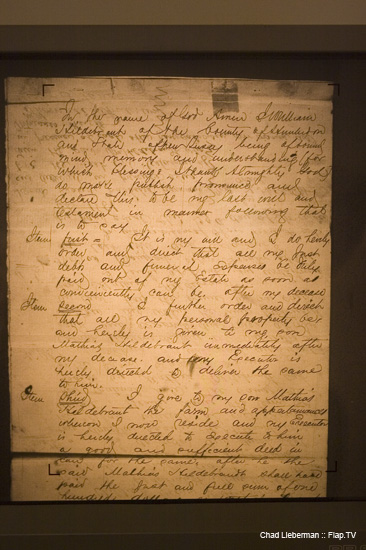 In the name of God Amen I William
Hildebrant of the County of Hunterdon
and State of New Jersey being of sound
mind memory and understanding for
which blessings I thank Almighty God
do make publish pronounce and
declare this to be my last will and
testament in manner following that
is to say
Item first = It is my will and I do hereby
order and direct that all my just
debts and funeral expenses be duly
paid out of my Estate as soon as
conveniently can be after my decease
Item Second I further order and direct
that all my personal property be
and hereby is given to my son
Mathias Hildebrant immediately after
my decease and my Executor is
hereby directed to deliver the same
to him.
Item Third I give to my son Mathias
Hildebrant the farm and appurtenances
whereon I now reside and my Executor
is hereby directed to Execute to him
a good and sufficient deed in
law for the same after he the
said Mathias Hildebrandt shall have
paid the just and full sum of one
hundred
Chad Lieberman :: Flap.TV